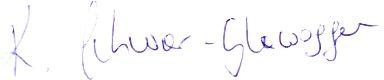 K. Schwar-Glawogger